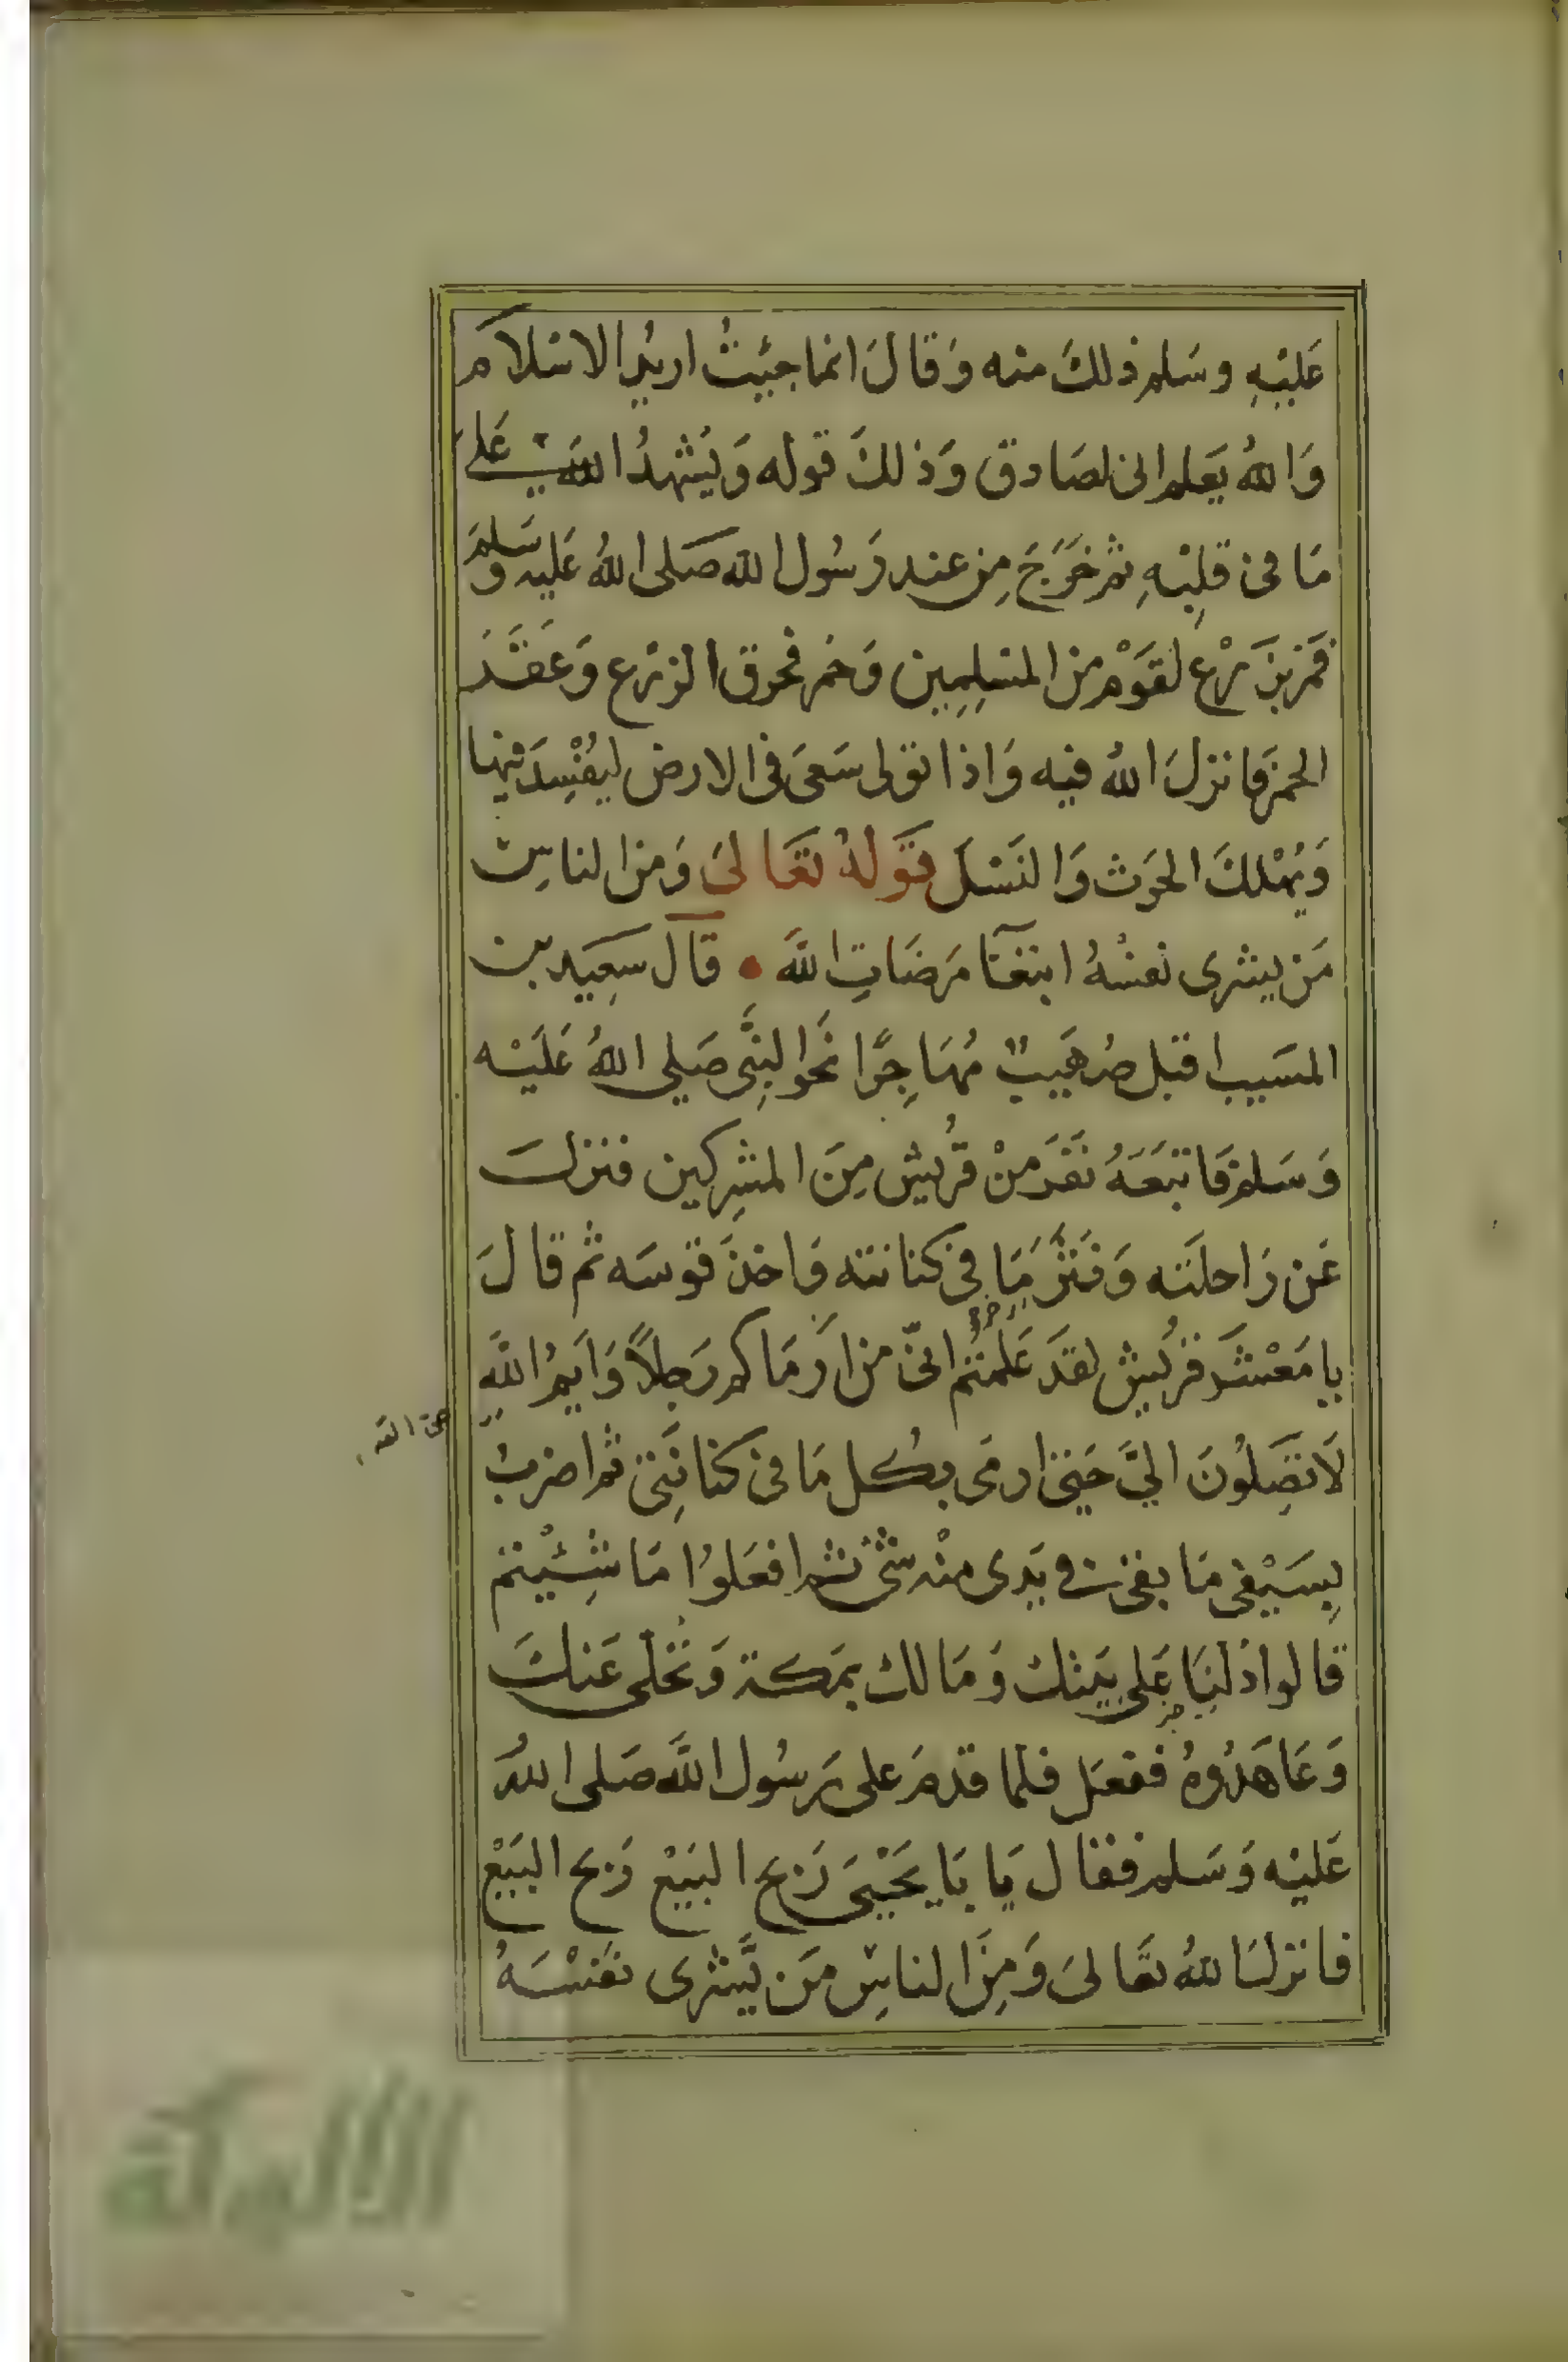 عَلَيْهِ وسَلم ذلكَ منه وَقالَ انما جِيْتُ اريدُ الاسْلامَ
وَاللهُ يَعلم انى لصَادق وَذلكَ قوله وَيُشْهِدُ اللهَ عَلى
مَا فى قلْبِهِ ثم خَرَجَ مِن عند رَسُول الله صَلى اللهُ عَليه وسَلمَ
فمَر بزَرْع لقَوْم من المسْلِمِين وَحمر فحرق الزرْع وَعَقَرَ
الحمر فانزلَ اللهُ فيه وَاذا تولى سَعىَ فى الارض ليُفْسِدَ فيها
وَيُهْلكَ الحَرث وَالنَسْلَ قَولهُ تعَالىَ وَمن الناسِ
مَن يشرى نفسْهُ ابتغآ مَرضَاتِ اللهَ • قالَ سَعِيَد بن
المسَيب اقبل صُهَيبٌ مُهَاجِرًا نَحو النِبَّى صَلي اللهُ عَليْه
وَسَلم فَاتبَعَهُ نفَر منْ قُريش مِنَ المشِركين فنزلَ
عَن رَاحلَته وَنَثَر مَا فى كنانته وَاخذَ قوسَه ثم قالَ
يا مَعْشَر قرُيش لقدَ عَلمْتُم انىّ من ارمَاكم رَجلاً وَايم اللهِ
حق الله
لاَ تصِلُونَ اليَّ حَتى ارمىَ بكُل مَا فى كنانَتِى ثم اضربُ
بِسَيْفى مَا بقى فى يَدى منْه شئ ثم افعَلوُا مَا شِئْيتم
قالوا دُلنِا عَلى بَيتك وَمَالك بمَكة وَنُخلّى عَنكَ
وَعَاهَدُوهُ ففعَل فلما قدمَ على رَسُول اللَّه صَلى اللهُ
عَليْه وَسَلم فقال يَا بَا يَحْيىَ رَبح البَيْع رَبح البَيْع
فانزلَ اللهُ تعَالىَ وَمِنَ الناسِ مَن يَّشرى نفسْهَُ